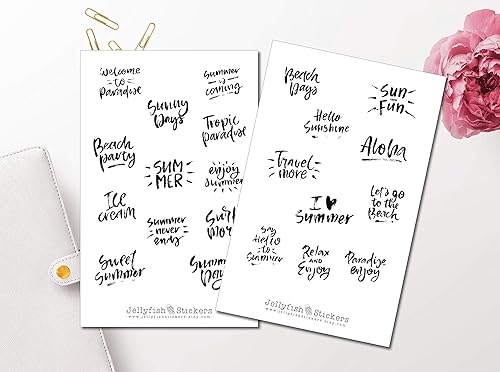 Welcome
to
Paradise
Summer
is
coming
Sunny
Days
Tropic
paradise
Beach
party
SUM
MER
enjoy
summer
Ice
cream
Summer
never
ends
Surf
Sweet
Summer
Summer
Jellyfish Stickers
Beach
Days
Sun
Fun
Hello
Sunshine
Aloha
Travel
more
I
Summer
Let's go
to the
Beach
Say
Hello
to
Summer
Relax
AND
Enjoy
Paradise
enjoy
Jellyfish Stickers
jellyfishstickers.etsy.com